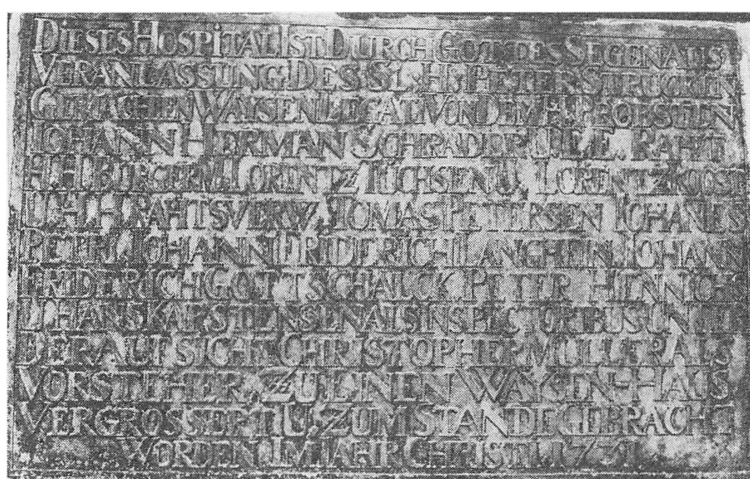 DIESES HOSPITAL IST DURCH GOTTES SEGEN AUS
VERANLASSUNG DES SL. H. PETER STRUCKEN
WAYSEN LEGAT VON DEM H. PROBSTEN
IOHANN HERMAN SCHRADER U. E. E. RAHT
H. H. BÜRGERM. LORENTZ TÜCHSEN U. LORENTZ
U. H. H. RAHTSVERW. TOMAS PETERSEN IOHANES
PETRI IOHANN FRIDERICH LANGHEIN IOHANN
FRIDERICH GOTTSCHALCK PETER HENNICK
U. HANS KARSTENSEN ALS INSPECTORIBUS UNTER
DER AUFSICHT CHRISTOPHER MÜLLER ALS
VORSTEHER ZU EINEN WAYSEN-HAUS
VERGROSSERT U. ZUM STANDE GEBRACHT
WORDEN IM JAHR CHRISTI 1731